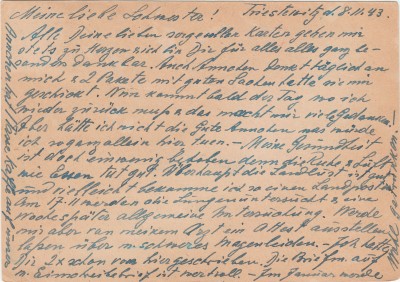 Meine liebe Schwester! Triestewitz d. 8.11.43.
Alle Deine lieben sorgenvollen Karten gehen mir
stets zu Herzen u. ich bin Dir für alles alles ganz be-
sonders dankbar. Auch Annchen denkt täglich an
mich u. 2 Pakete mit guten Sachen hatte sie mir
geschickt. Nun kommt bald der Tag wo ich
wieder zurück muss u. das macht mir viele Gedanken.
Aber hätte ich nicht die gute Annchen was würde
ich so ganz allein hier tun. — Meine Gesundheit
ist doch einwenig behoben denn die Ruhe u. Luft
wie Essen tut gut. Überhaupt die Landluft ist gut
und vielleicht bekomme ich so einen Landposten
Am 17.11 werden die Lungen untersucht u. eine
Woche später allgemeine Untersuchung. Werde
mir aber von meinem Arzt ein Attest ausstellen
lassen über m. schweres Magenleiden. — Ich hatte
Dir 2x schon von hier geschrieben. Die Briefm. auf
m. Einschreibebrief ist wertvoll. — Im Januar werde